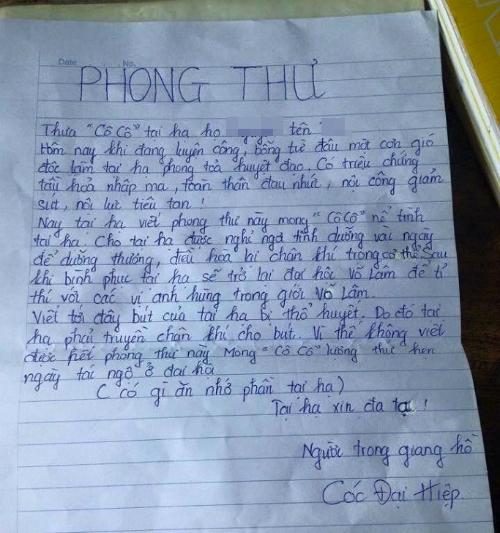 Date No.
PHONG THƯ
Thưa "Cô Cô" tại hạ họ tên
Hôm nay khi đang luyện công, bỗng từ đâu một cơn gió
độc làm tại hạ phong toả huyệt đạo. Có triệu chứng
tẩu hoả nhập ma, toàn thân đau nhức, nội công giảm
sút, nội lực tiêu tan!
Nay tại hạ viết phong thư này mong "Cô Cô" nể tình
tại hạ. Cho tại hạ được nghỉ ngơi tĩnh dưỡng vài ngày
để dưỡng thương, điều hoà lại chân khí trong cơ thể. Sau
khi bình phục tại hạ sẽ trở lại đại hội Võ Lâm để tỉ
thí với các vị anh hùng trong giới Võ Lâm.
Viết tới đây bút của tại hạ bị thổ huyết. Do đó tại
hạ phải truyền chân khí cho bút. Vì thế không viết
được hết phong thư này Mong "Cô Cô" lượng thứ hẹn
ngày tái ngộ ở đại hội
( Có gì ăn nhớ phần tại hạ )
Tại hạ xin đa tạ!
Người trong giang hồ
Cóc Đại Hiệp.